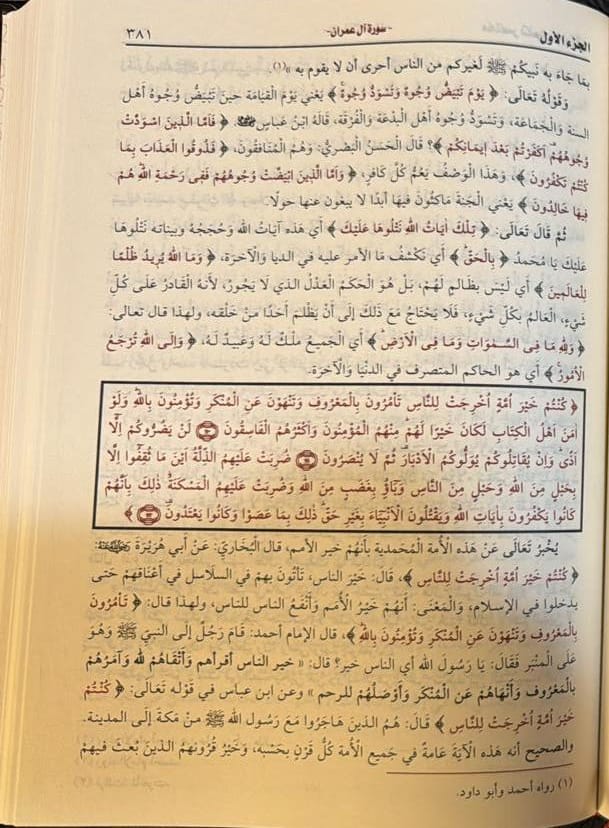 الجزء الأول -سورة آل عمران- ٣٨١
بمَا جَاءَ به نَبيكُمْ ﷺ لَغيركم من الناس أحرى أن لا يقوم به »(١).
وَقَوْلُهُ تَعَالى: ﴿ يَوْمَ تَبْيَضُّ وُجُوهٌ وَتَسْوَدُّ وُجُوهٌ ﴾ يَعْني يَوْمَ القيَامَة حينَ تَبْيَضُّ وُجُوهُ أهْل
السنة وَالْجَمَاعَة، وَتَسْوَدُّ وُجُوهُ أهْل البدْعَة وَالْفُرْقَة، قَالهُ ابْنُ عَباس، ﴿ فَاَمَّا الَّذينَ اسْوَدَّتْ
وُجُوهُهُمْ اَكَفَرْتُمْ بَعْدَ ايمَانكُمْ ﴾؟ قالَ الحَسَنُ البَصْريُّ: وَهُمُ المُنَافقُونَ، ﴿ فَذُوقُوا الْعَذَابَ بمَا
كُنْتُمْ تَكْفُرُونَ ﴾، وَهَذا الْوَصْفُ يَعُمُّ كُلَّ كافرٍ، ﴿ وَاَمَّا الَّذينَ ابْيَضَّتْ وُجُوهُهُمْ فَفى رَحْمَة اللّٰه هُمْ
فيهَا خَالدُونَ ﴾ يَعْني الْجَنةَ مَاكثُونَ فيهَا أبَدًا لا يبغون عنها حولًا.
ثُمَّ قَالَ تَعَالى: ﴿ تلْكَ اٰيَاتُ اللّٰه نَتْلُوهَا عَلَيْكَ ﴾ أي هَذه آيَاتُ الله وَحُجَجُهُ وبيناته نَتْلُوهَا
عَلَيْكَ يَا مُحمدُ ﴿ بالْحَقّ ﴾ أي نَكْشفُ مَا الأمرُ عليه في الدنيا وَالآخرَة، ﴿ وَمَا اللّٰهُ يُريدُ ظُلْمًا
للْعَالَمينَ ﴾ أي لَيْسَ بظالمٍ لَهُمْ، بَلْ هُوَ الْحَكَمُ الْعَدْلُ الذي لا يَجُورُ، لأنهُ القَادرُ عَلى كُلّ
شَيْءٍ، الْعَالمُ بكُلّ شَيْءٍ، فَلا يَحْتَاجُ مَعَ ذَلكَ إلَى أنْ يَظْلمَ أحَدًا منْ خَلْقه، وَلهذا قال تعالى:
﴿ وَللّٰه مَا فى السَّمٰوَات وَمَا فى الْاَرْض ﴾ أي الْجَميعُ ملْكٌ لَهُ وَعَبيدٌ لَهُ، ﴿ وَالَى اللّٰه تُرْجَعُ
الْاُمُورُ ﴾ أي هو الحاكم المتصرف في الدنْيَا وَالآخرَة.
﴿ كُنْتُمْ خَيْرَ اُمَّةٍ اُخْرجَتْ للنَّاس تَاْمُرُونَ بالْمَعْرُوف وَتَنْهَوْنَ عَن الْمُنْكَر وَتُؤْمنُونَ باللّٰه وَلَوْ
اٰمَنَ اَهْلُ الْكتَاب لَكَانَ خَيْرًا لَهُمْ منْهُمُ الْمُؤْمنُونَ وَاَكْثَرُهُمُ الْفَاسقُونَ لَنْ يَضُرُّوكُمْ الَّا
اَذًى وَانْ يُقَاتلُوكُمْ يُوَلُّوكُمُ الْاَدْبَارَ ثُمَّ لَا يُنْصَرُونَ ضُربَتْ عَلَيْهمُ الذّلَّةُ اَيْنَ مَا ثُقفُوا الَّا
بحَبْلٍ منَ اللّٰه وَحَبْلٍ منَ النَّاس وَبَاؤُ بغَضَبٍ منَ اللّٰه وَضُربَتْ عَلَيْهمُ الْمَسْكَنَةُ ذٰلكَ باَنَّهُمْ
كَانُوا يَكْفُرُونَ باٰيَات اللّٰه وَيَقْتُلُونَ الْاَنْبيَاءَ بغَيْر حَقٍّ ذٰلكَ بمَا عَصَوْا وَكَانُوا يَعْتَدُونَ ﴾
يُخْبرُ تَعَالى عَنْ هَذه الأُمة المُحَمدية بأنهُمْ خير الأمم، قال الْبُخَاريّ: عَنْ أبي هُرَيْرَةَ:
﴿ كُنْتُمْ خَيْرَ اُمَّةٍ اُخْرجَتْ للنَّاس ﴾، قَالَ: خَيْرَ الناس، تَأتُونَ بهمْ في السلاسل في أعْنَاقهمْ حتى
يدخلوا في الإسلام، وَالْمَعْنَى: أنهُمْ خَيْرُ الأُمَم وَأنْفَعُ الناس للناس، ولهذا قال: ﴿ تَاْمُرُونَ
بالْمَعْرُوف وَتَنْهَوْنَ عَن الْمُنْكَر وَتُؤْمنُونَ باللّٰه ﴾، قال الإمام أحمد: قَامَ رَجُلٌ إلَى النبي ﷺ وَهُوَ
عَلَى الْمنْبَر فَقَالَ: يَا رَسُولَ الله أي الناس خير؟ قال: « خير الناس أقرأهم وَأتْقَاهُمْ لله وآمَرُهُمْ
بالْمَعْرُوف وَأنْهَاهُمْ عَن الْمُنْكَر وَأوْصَلُهُمْ للرحم » وعن ابن عباس في قوله تَعَالَى: ﴿ كُنْتُمْ
خَيْرَ اُمَّةٍ اُخْرجَتْ للنَّاس ﴾ قَالَ: هُمُ الذينَ هَاجَرُوا مَعَ رَسُول الله ﷺ منْ مَكةَ إلى المَدينة.
والصحيح أنه هَذه الْآيَةَ عَامةٌ في جَميع الأُمة كُلُّ قَرْنٍ بحَسْبه، وَخَيْرُ قُرُونهمُ الذينَ بُعثَ فيهمْ
(١) رواه أحمد وأبو داود.